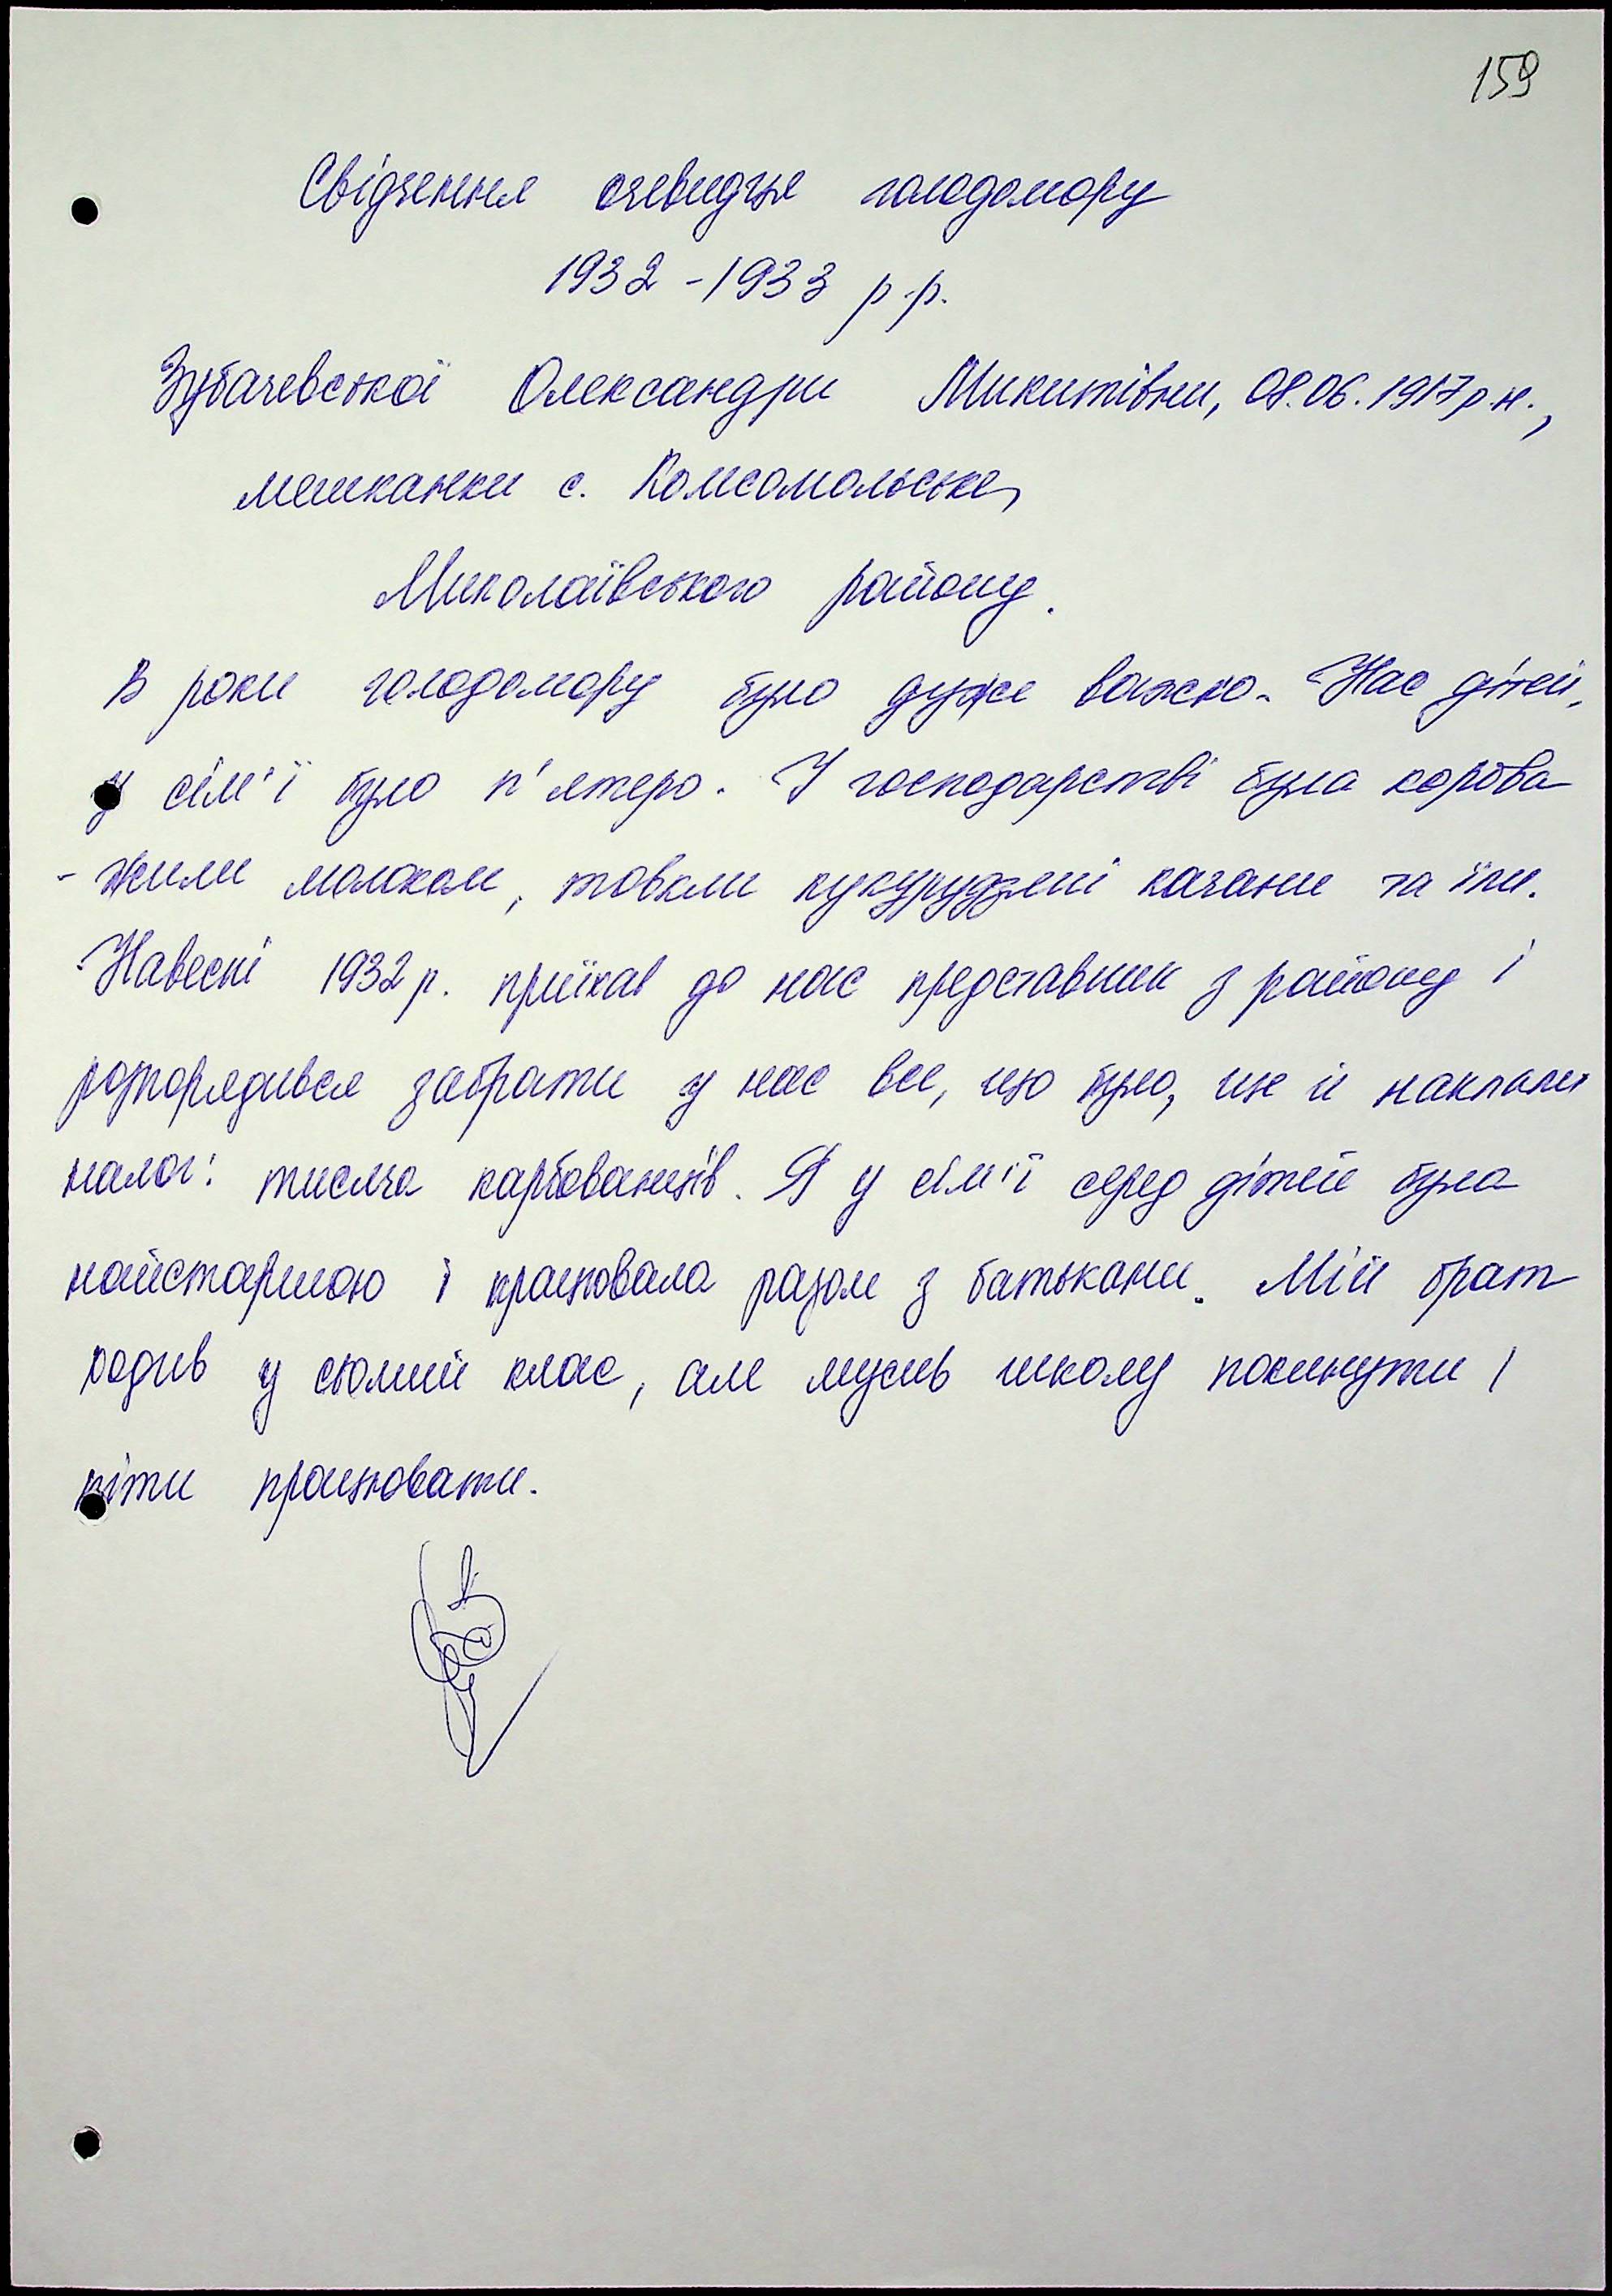 159
Свідчення очевидця голодомору
1932 - 1933 р.р.
Зубачевської Олександри Микитівни, 08.06.1917 р.н.,
мешканки с. Комсомольське,
Миколаївського району.
В роки голодомору було дуже важко. Нас дітей,
у сім'ї було п'ятеро. У господарстві була корова
- жили молоком, товкли кукурудзяні качани та їли.
Навесні 1932 р. приїхав до нас представник з району і
розпорядився забрати у нас все, що було, ще й наклали
налог: тисяча карбованців. Я у сім'ї серед дітей була
найстаршою і працювала разом з батьками. Мій брат
ходив у сьомий клас, але мусив школу покинути і
піти працювати.